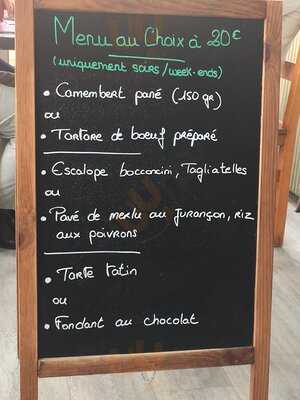 Menu au Choix à 20€
(uniquement soirs/week-ends)
• Camembert pané (150 gr)
ou
• Tartare de boeuf préparé
• Escalope bocconcini, Tagliatelles
ou
• Pavé de merlu au Jurançon, riz
aux poivrons
• Tarte tatin
ou
• Fondant au chocolat